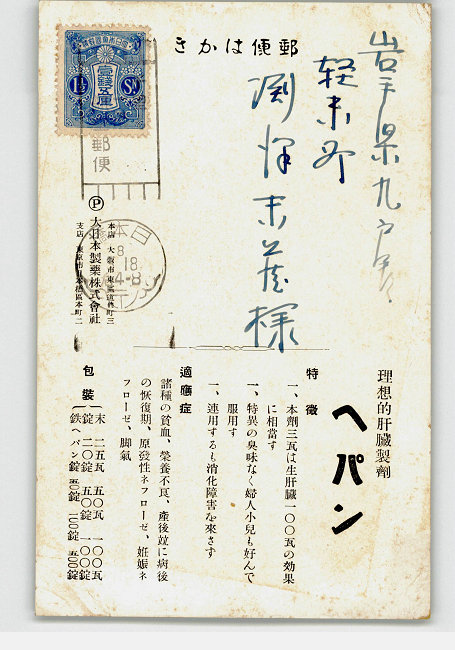 郵便はかき
大日本帝國郵便
壹錢五厘
1½ Sn
郵便
岩手県九戸郡
軽米町
様
理想的肝臓製劑
ヘパン
特徴
一、本劑三瓦は生肝臓一〇〇瓦の効果
に相當す
一、特異の臭味なく婦人小兒も好んで
服用す
一、連用するも消化障害を來さす
適應症
諸種の貧血、榮養不良、產後竝に病後
の恢復期、原發性ネフローゼ、妊娠ネ
フローゼ、脚氣
包裝
末 二五瓦 五〇瓦 一〇〇瓦
錠 二〇錠 五〇錠 一〇〇錠
鉄ヘパン錠 五〇錠 一〇〇錠 五〇〇錠
Ⓟ 大日本製藥株式會社
本店 大阪市東區道修町三
支店 東京市日本橋區本町二
日本橋
8
18
4-8